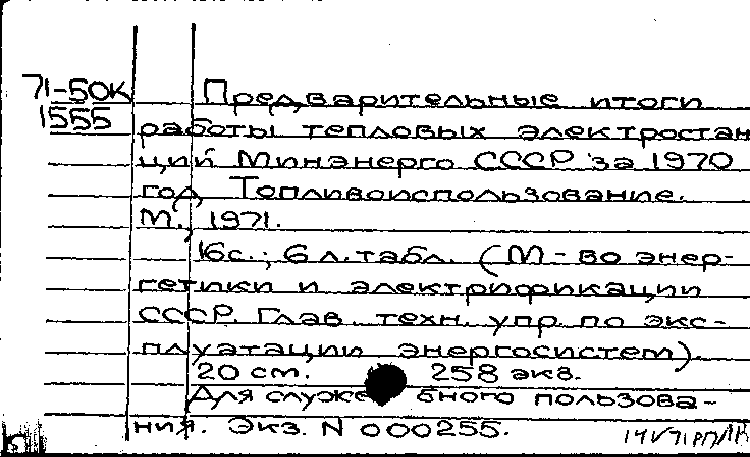 71-50К
1555
Предварительные итоги
работы тепловых электростан
ций Минэнерго СССР за 1970
год. Топливоиспользование.
М., 1971.
16с.; 6 л.табл. (М-во энер-
гетики и электрификации
СССР. Глав. техн. упр. по экс-
плуатации энергосистем).
20 см. 258 экз.
Для служебного пользова-
ния. Экз. N 000255.